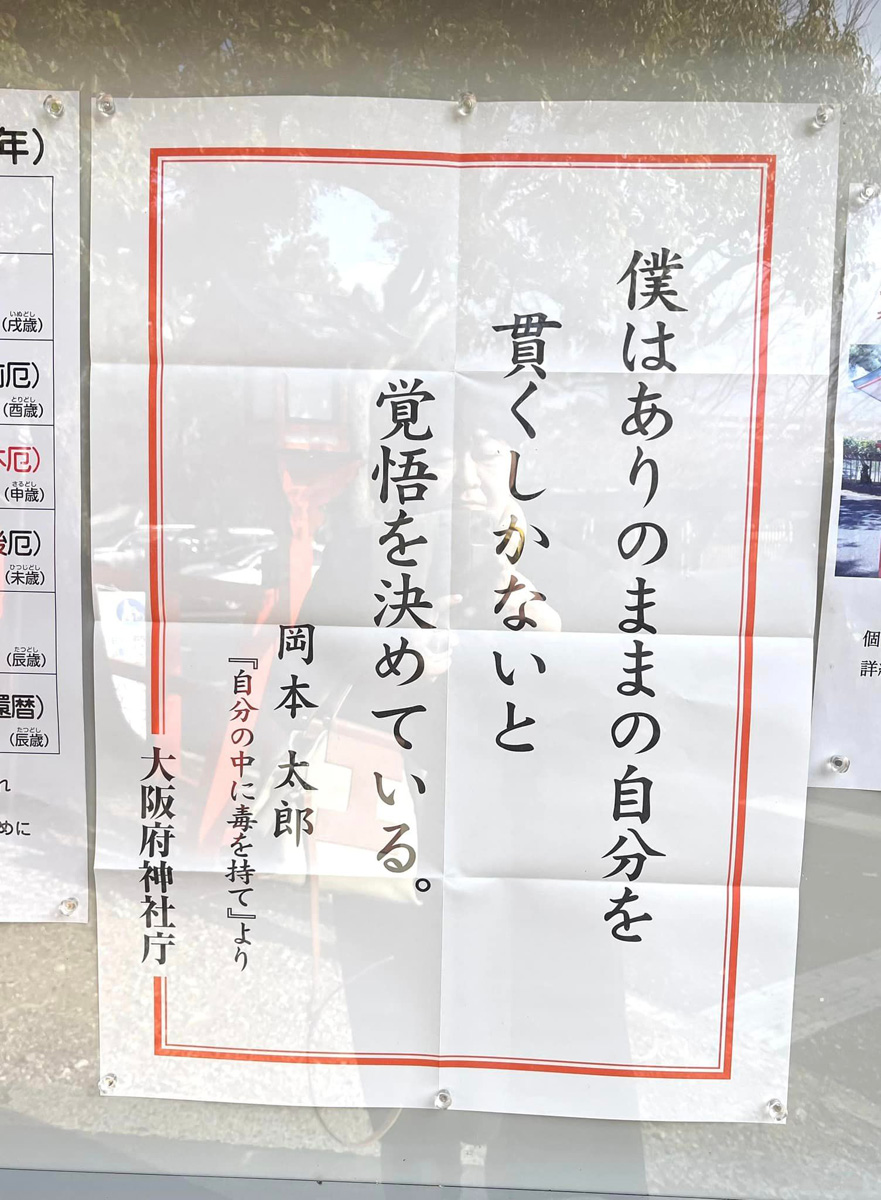 僕はありのままの自分を
貫くしかないと
覚悟を決めている。
岡本 太郎
『自分の中に毒を持て』より
大阪府神社庁
年)
いぬどし
(戌歳)
前厄)
とりどし
(酉歳)
本厄)
さるどし
(申歳)
後厄)
ひつじどし
(未歳)
たつどし
(辰歳)
還暦)
たつどし
(辰歳)
れ
めに
個
詳細